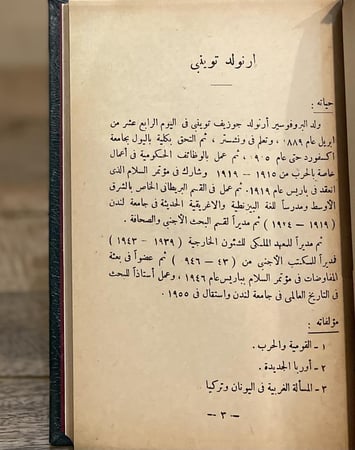 أرنولد توينبى
حياته :
ولد البروفوسير أرنولد جوزيف توينبى فى اليوم الرابع عشر من
ابريل عام ٨٨٩، وتعلم فى ونشستر ، ثم التحق بكلية باليول بجامعة
اكسفورد حتى عام ٩٠٥ ، ثم عمل بالوظائف الحكومية فى أعمال
خاصة بالحرب من ١٩١٥ – ١٩١٩ وشارك فى مؤتمر السلام الذى
انعقد فى باريس عام ١٩١٩. ثم عمل فى القسم البريطانى الخاص بالشرق
الأوسط ومدرساً للغة البيزنطية والاغريقية الحديثة فى جامعة لندن
( ١٩١٩ – ١٩٢٤ ) ثم مديراً لقسم البحث الأجنبى والصحافة .
ثم مديراً للمعهد الملكى للشئون الخارجية ( ١٩٣٩ – ١٩٤٣ )
فديراً للمكتب الأجنبى من ( ٤٣ – ٩٤٦ ) ثم عضواً فى بعثة
المفاوضات فى مؤتمر السلام بباريس عام ١٩٤٦ ، وعمل أستاذاً للبحث
فى التاريخ العالمى فى جامعة لندن واستقال فى ١٩٥٥ .
مؤلفاته :
١ – القومية والحرب .
٢ – أوربا الجديدة .
٣ – المسألة الغربية فى اليونان وتركيا
– ٣ –